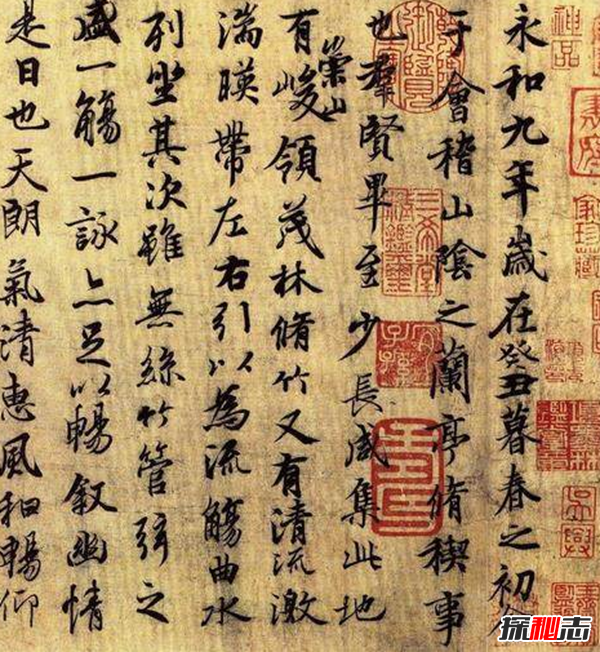 永和九年歲在癸丑暮春之初會
于會稽山陰之蘭亭脩稧事
也羣賢畢至少長咸集此地
有崇山峻領茂林脩竹又有清流激
湍暎帶左右引以為流觴曲水
列坐其次雖無絲竹管弦之
盛一觴一詠亦足以暢敘幽情
是日也天朗氣清惠風和暢仰
神品
三希堂精鑑璽
宜子孫
探秘志